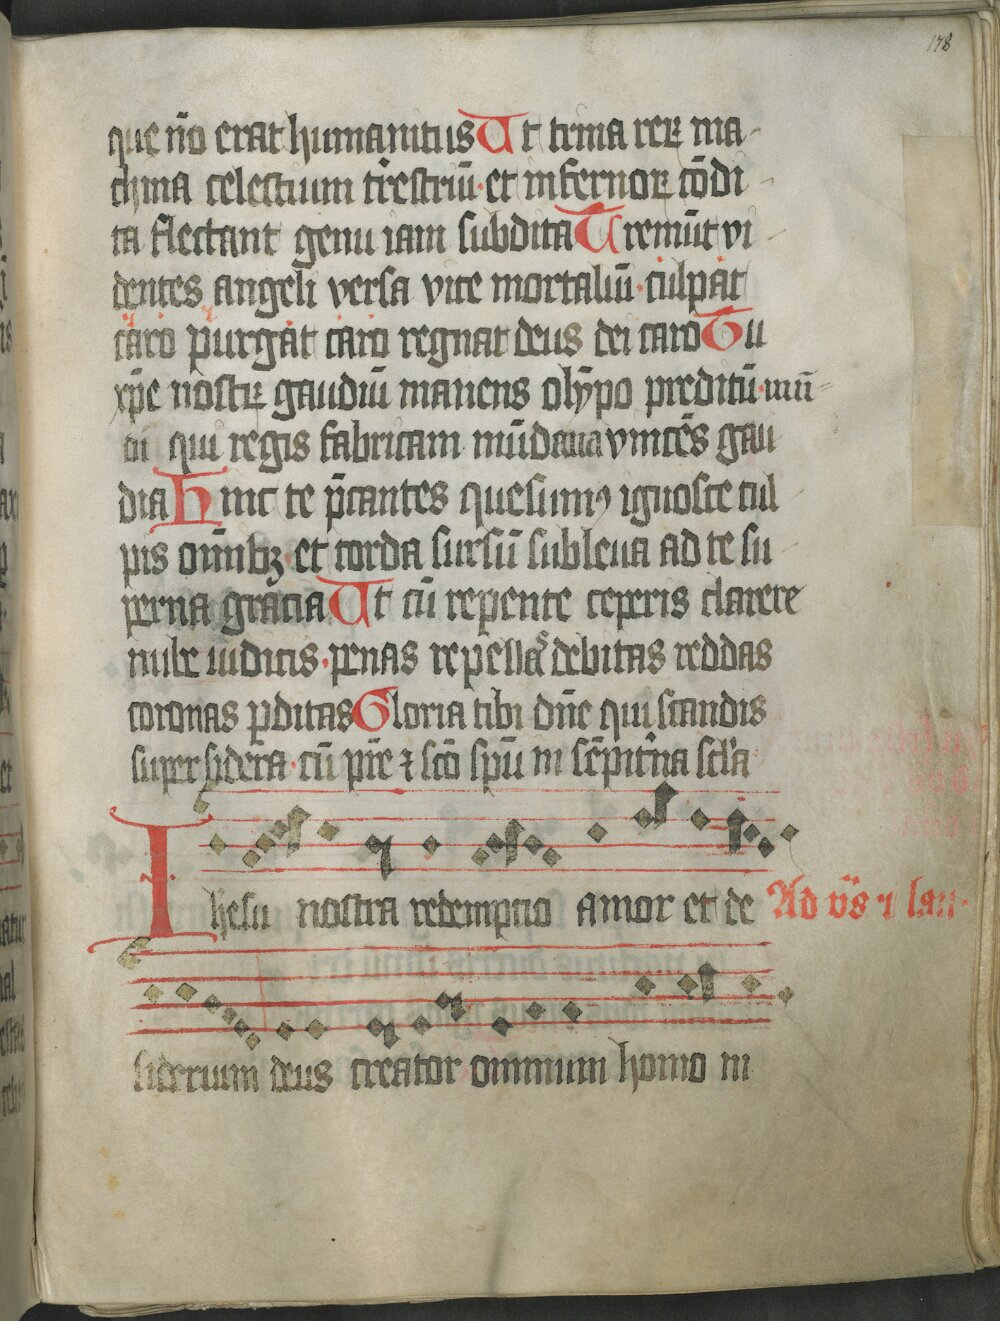 178
que nō erat humanitus Ut trina rerꝝ ma
china celestium t̄restriū · et infernoꝝ cōdi
ta flectant genu iam subdita Tremūt vi
dentes angeli versa vice mortaliū · culpat
caro purgat caro regnat deus dei caro Tu
xp̄e nostrꝝ gaudiū manens olȳpo preditū · mū
di qui regis fabricam mūdana vincēs gau
dia Hinc te p̄cantes quesumꝰ ignosce cul
pis om̄ibꝫ et corda sursū subleua ad te su
perna grācia Ut cū repente ceperis clarere
nube iudicis · penas repellas debitas reddas
coronas ꝑditas Gloria tibi dn̄e qui scandis
super sydera · cū pr̄e ⁊ scō spū in sēpit̄na scl̄a
Ihesu nostra redemptio amor et de Ad vs̄ ⁊ lau·
siderium deus creator omnium homo in